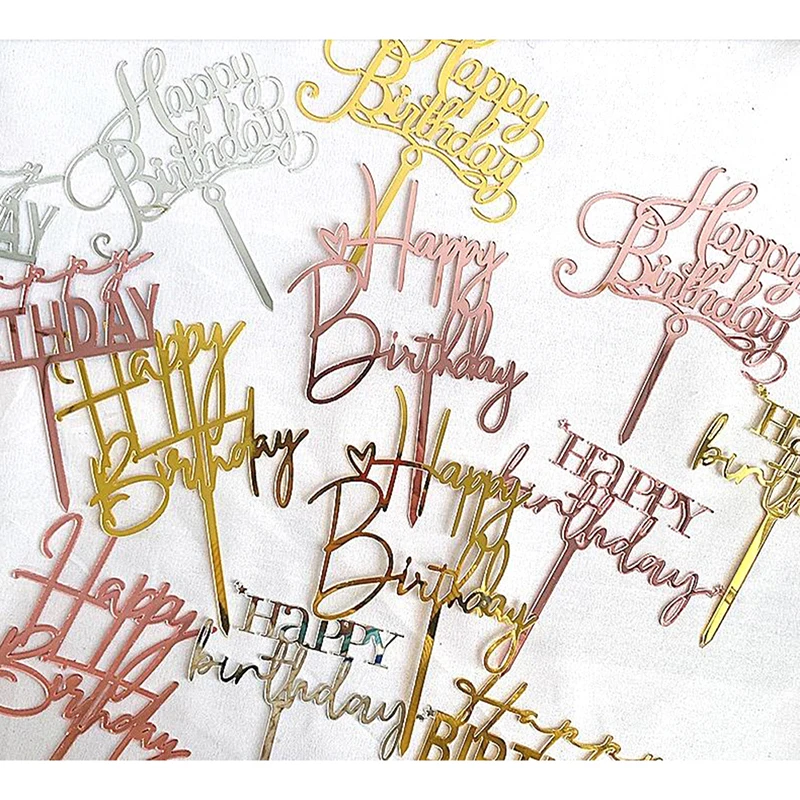 Happy
Birthday
Happy
Birthday
AY
Happy
Birthday
Happy
Birthday
ppy
THDAY
Happy
Birthday
Happy
Birthday
HaPPY
birthday
Ha
birth
Happy
Birthday
HaPPY
birthday
Happy
BIRT